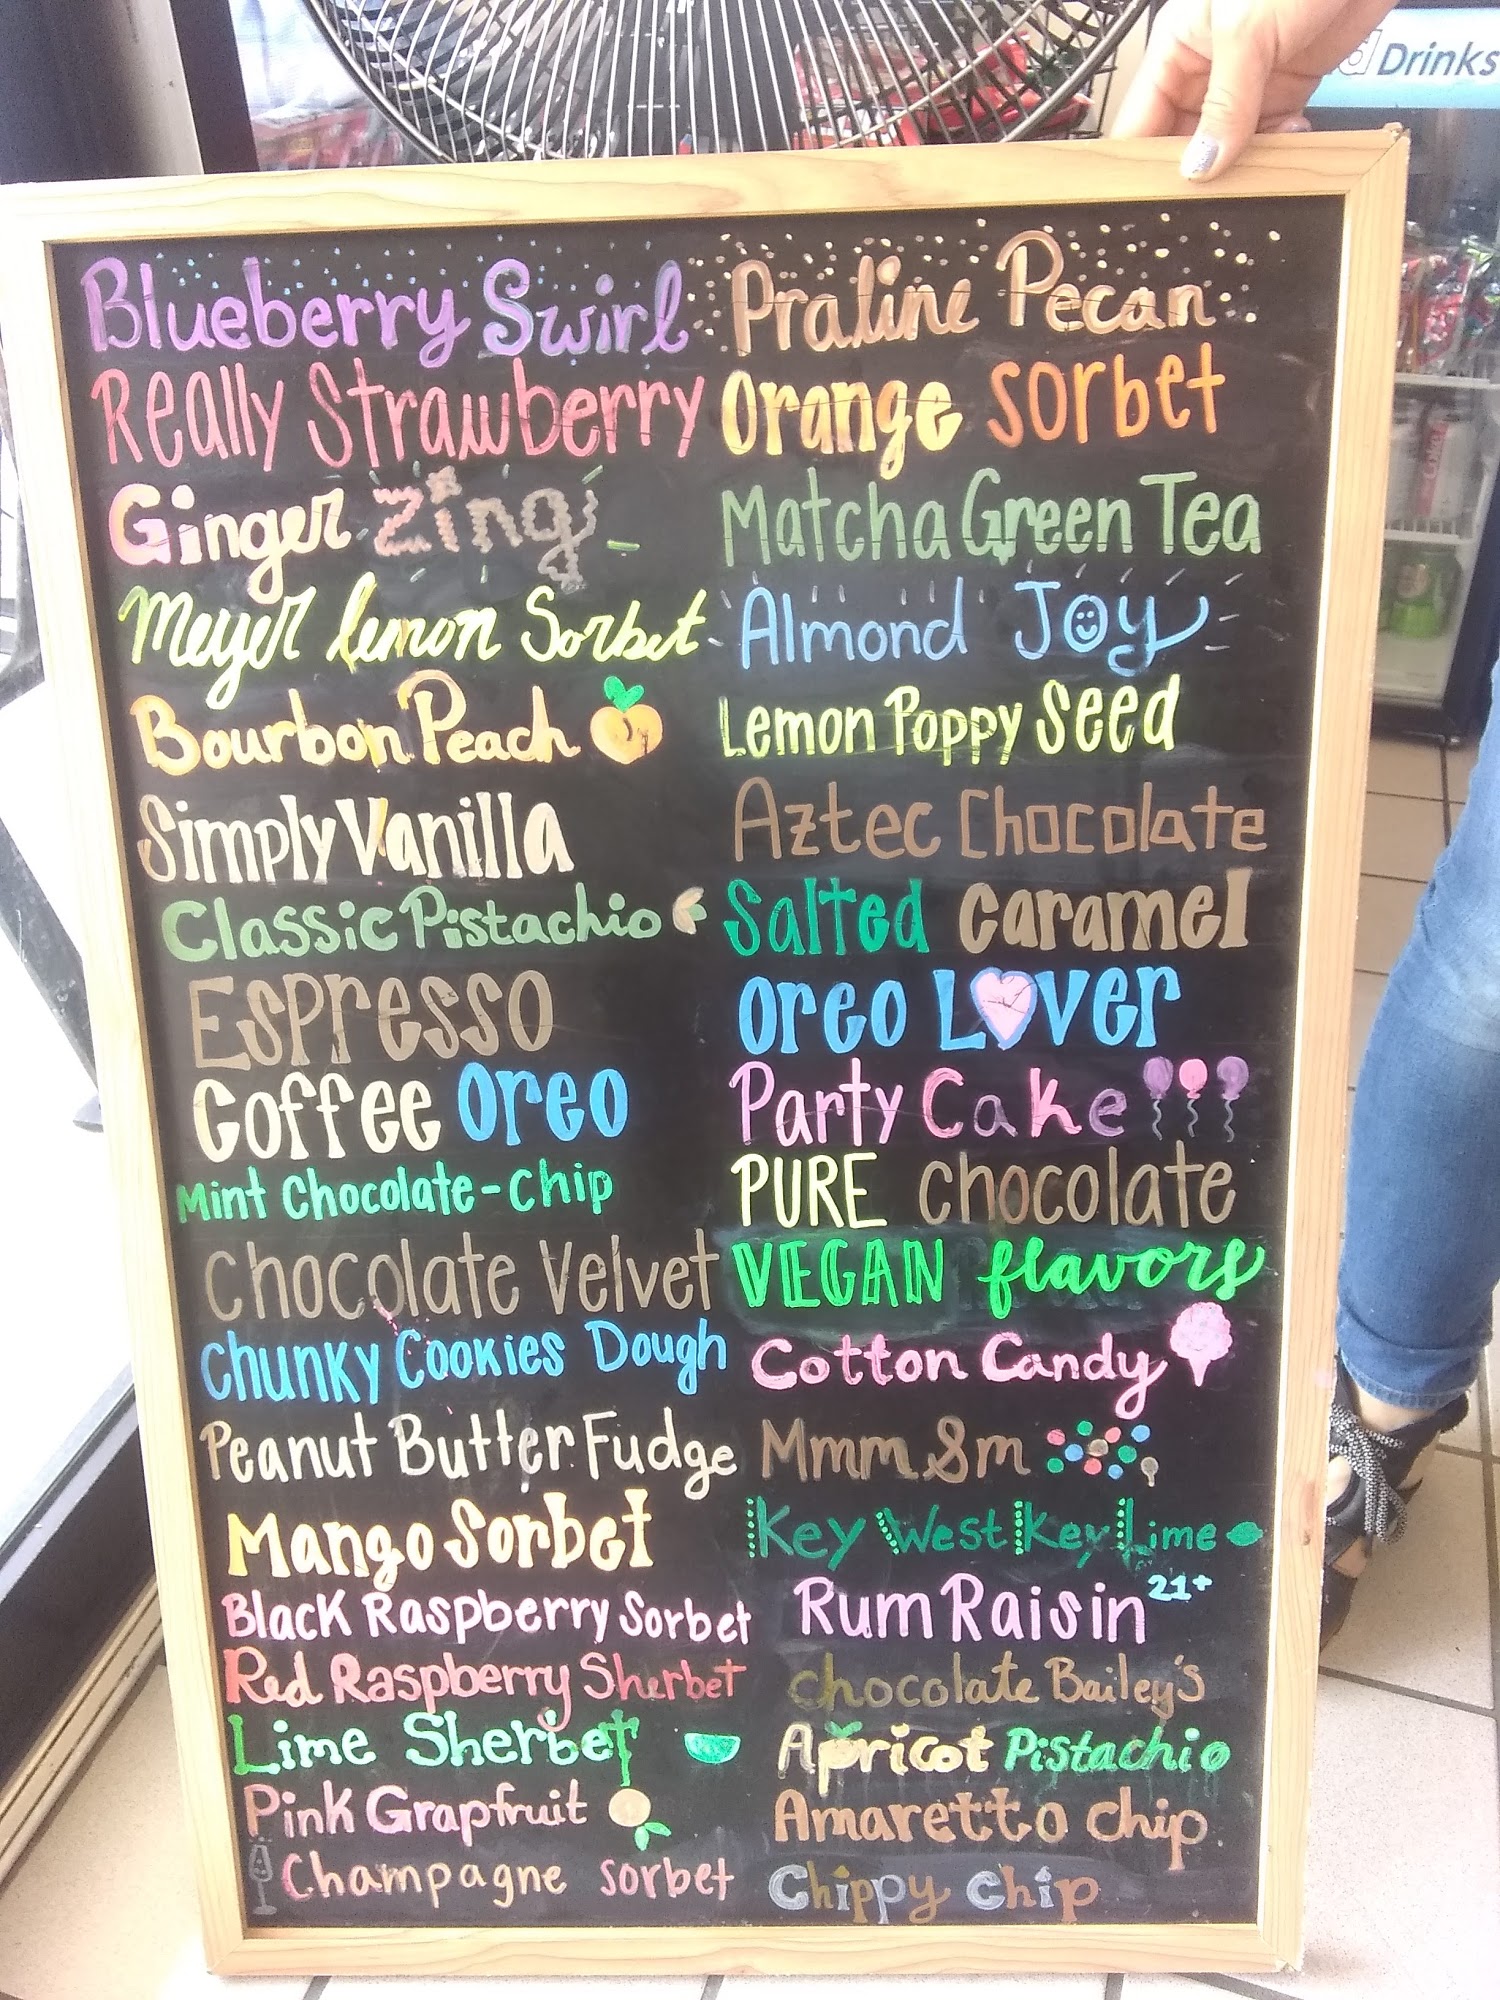 Drinks
Blueberry Swirl
Really Strawberry
Ginger Zing
Meyer lemon Sorbet
Bourbon Peach
Simply Vanilla
Classic Pistachio
Espresso
Coffee Oreo
Mint Chocolate-Chip
Chocolate Velvet
Chunky Cookies Dough
Peanut Butter Fudge
Mango Sorbet
Black Raspberry Sorbet
Red Raspberry Sherbet
Lime Sherbet
Pink Grapfruit
Champagne sorbet
Praline Pecan
Orange Sorbet
Matcha Green Tea
Almond Joy
Lemon Poppy Seed
Aztec Chocolate
Salted Caramel
Oreo Lover
Party Cake
PURE chocolate
VEGAN flavors
Cotton Candy
Mmm Sm
Key West Key Lime
Rum Raisin 21+
Chocolate Bailey's
Apricot Pistachio
Amaretto Chip
Chippy Chip